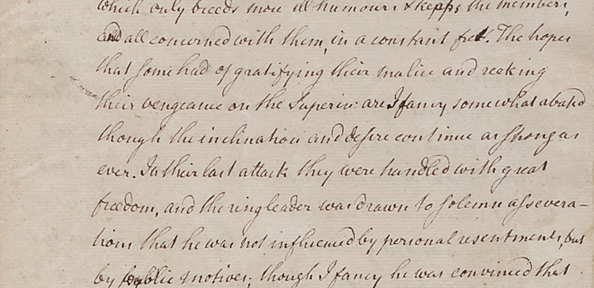 which only breeds more ill humour & keeps the members,
and all concerned with them, in a constant fret. The hopes
that some had of gratifying their malice and reeking
their vengeance on the Superior are I fancy somewhat abated
though the inclination and desire continue as strong as
ever. In their last attack they were handled with great
freedom, and the ringleader was drawn to solemn assevera-
tions that he was not influenced by personal resentments, but
by public motives; though I fancy he was convinced that